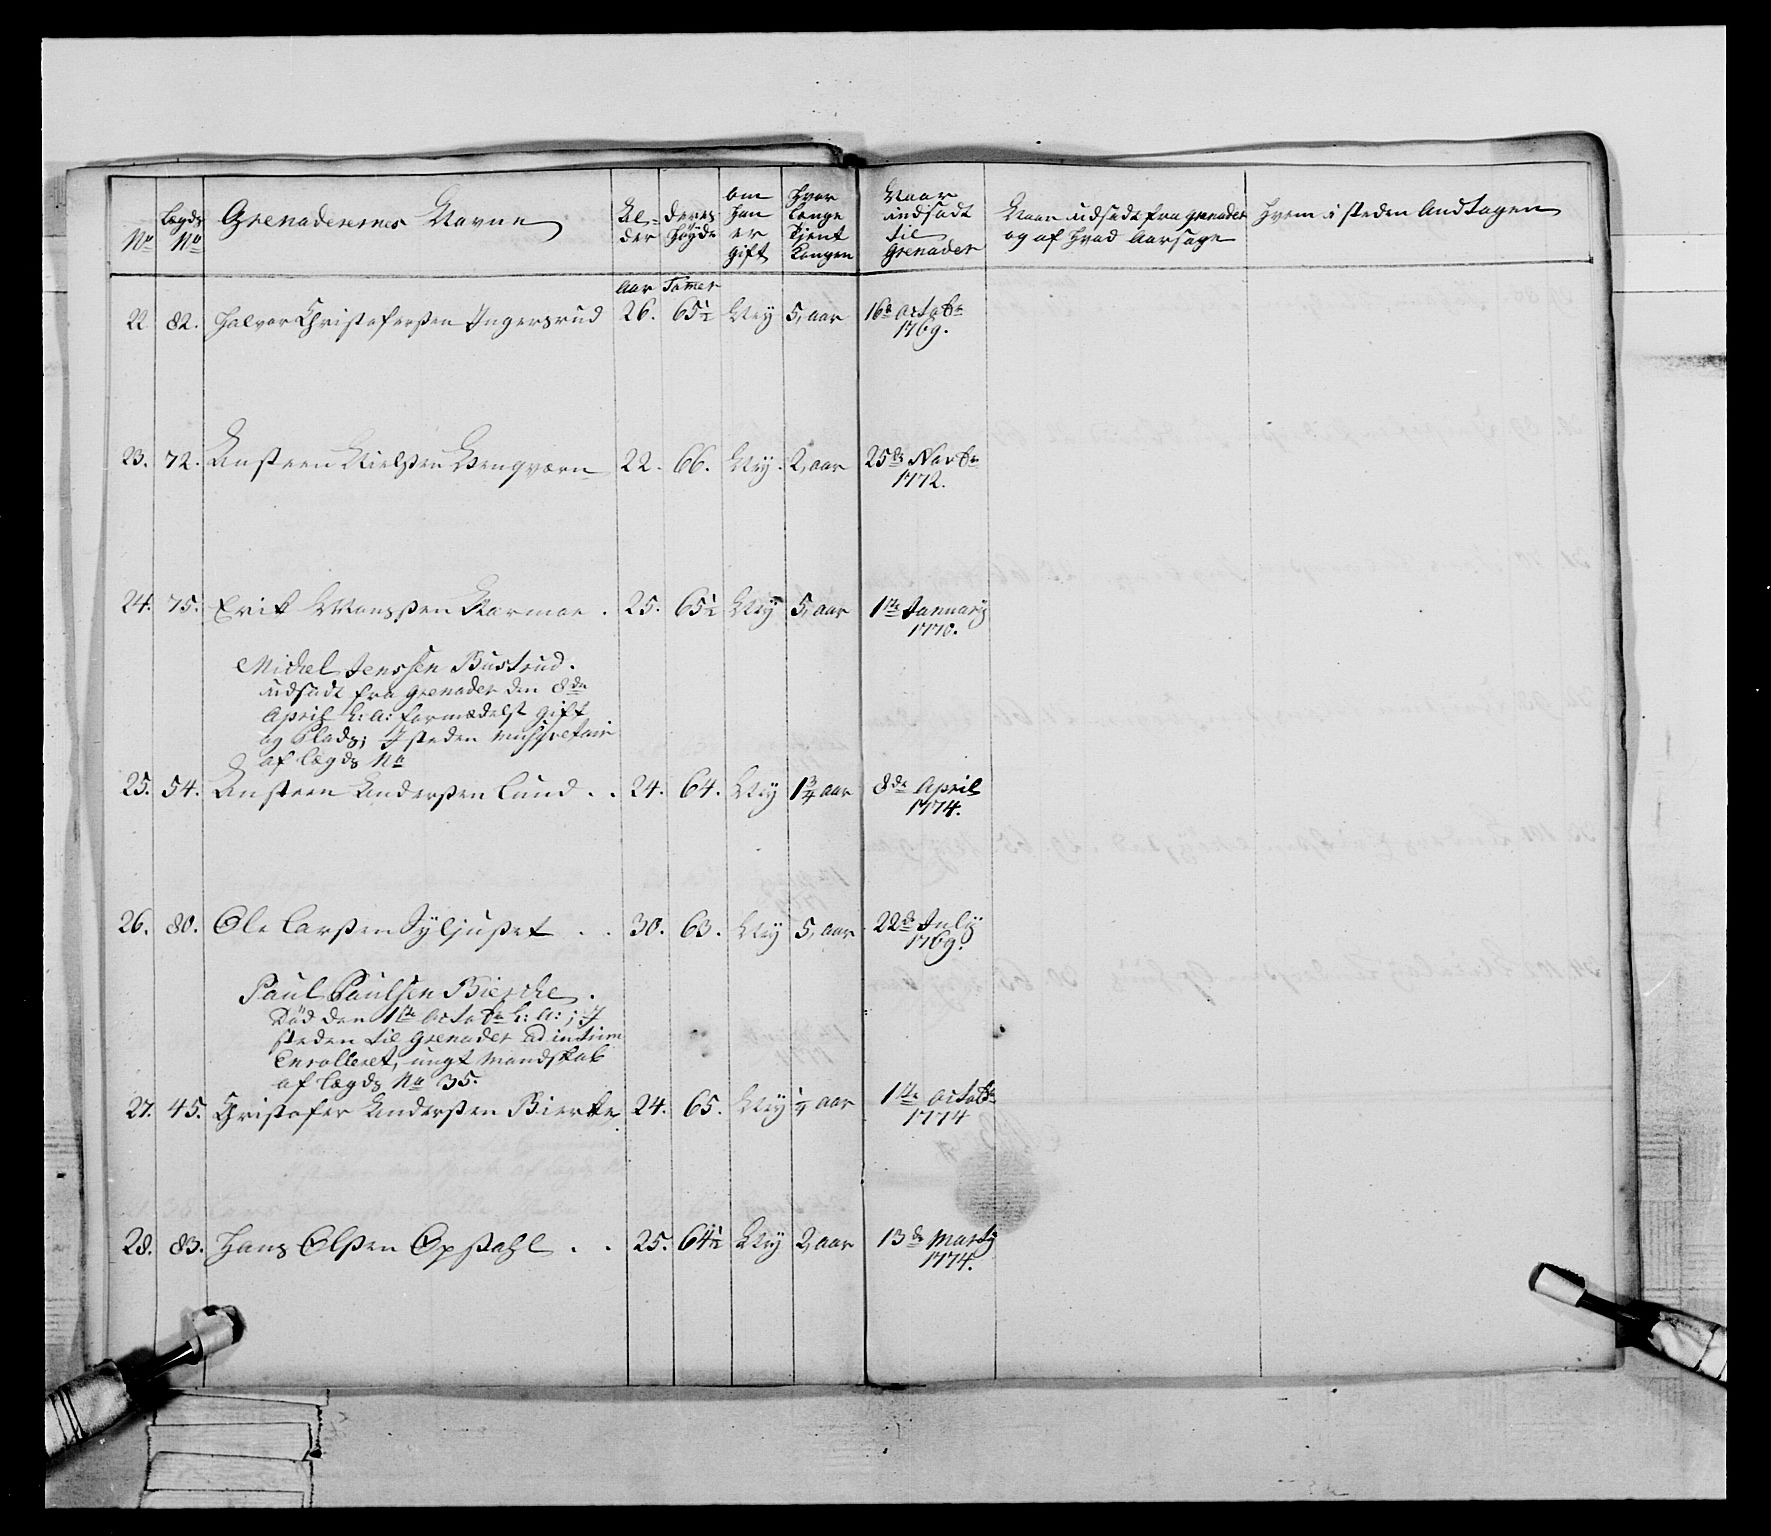 No
Lægds No
Grenaderernes Navne
Al-
der
deres
Høyde
om
han
er
gift
Hvor
Længe
Tjent
Kongen
Naar
indsadt
til
Grenader
Naar udsadt fra Grenader
og af Hvad Aarsage
Hvem i steden Andtagen
Aar Tomer
22 82. Halvor Christofersen Ingersrud 26. 65½ Ney 5, aar 16de octobr
1769.
23. 72. Ansteen Nielsen Kongværn 22. 66. Ney. 2, aar 25de Novbr
1772.
24. 75. Erik Monssen Kormoe . 25. 65½ Ney 5, aar 1te January
1770.
Michel Jenssen Bustrud.
udsadt fra Grenader den 8de
April h: a: formedelst gift
og Plads; I steden Musqvetair
af Lægds No
25. 54. Ansteen Andersen Lund . . 24. 64. Ney 1¾ aar 8de April
1774.
26. 80. Ole Larsen Syljuset . . 30. 63. Ney 5, aar 22de July
1769.
Paul Paulsen Bierche .
Død den 1te octobr h: a: ; I
steden til Grenader ad intrim
Enrolleret, ungt Mandskab
af Lægds No 35.
27. 45. Christofer Andersen Bierke 24. 65. Ney ¼ aar 1te octobr
1774
28. 83. Hans Olsen Opstahl . . 25. 64½ Ney 2, aar 13de Marty
1774.